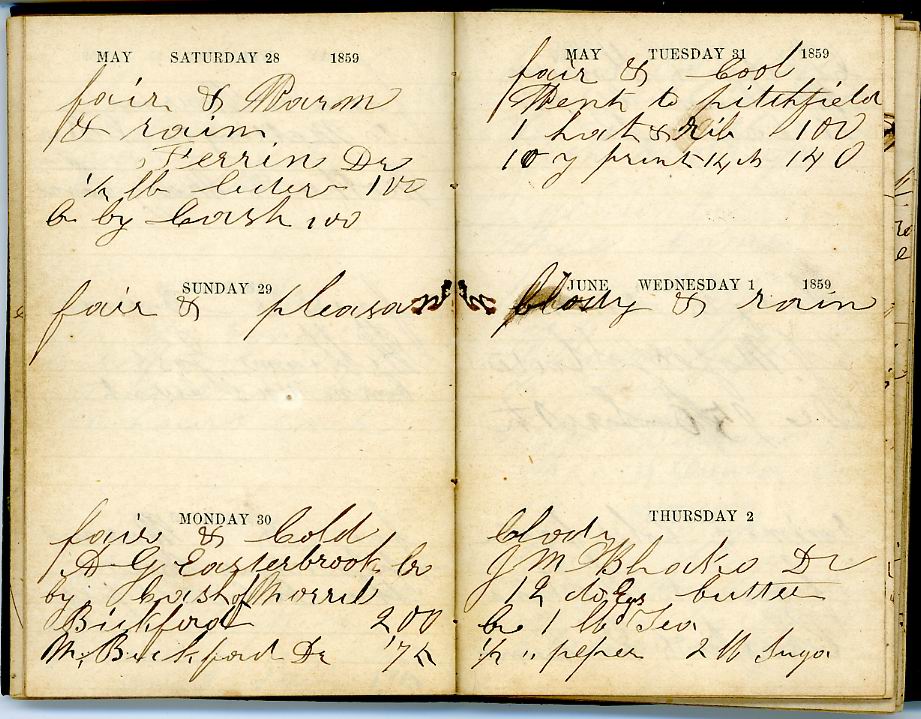 MAY SATURDAY 28 1859
fair & Warm
& rain
Ferrin Dr
1/2 lb 100
Cr by Cash 100
SUNDAY 29
fair & pleasan
MONDAY 30
fair & Cold
A G Easterbrook Cr
by Cash of Morril
Bickford 200
M. Bickford Dr
MAY TUESDAY 31 1859
fair & Cool
Went to pittsfield
1 hat & rib 100
10 y print 14 ct 140
JUNE WEDNESDAY 1 1859
clody & rain
THURSDAY 2
clody
J M Dr
12 do Egs butter
Cr 1 lb Tea
1/2 " peper 2 lb Suga